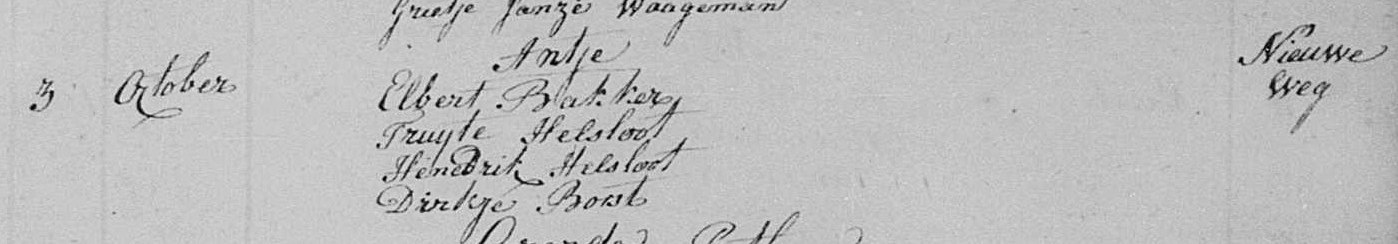 Grietje Janze Waageman
Antje
Nieuwe
3 October
Elbert Bakker
Weg
Truyte Helsloot
Hendrik Helsloot
Dirkje Borst